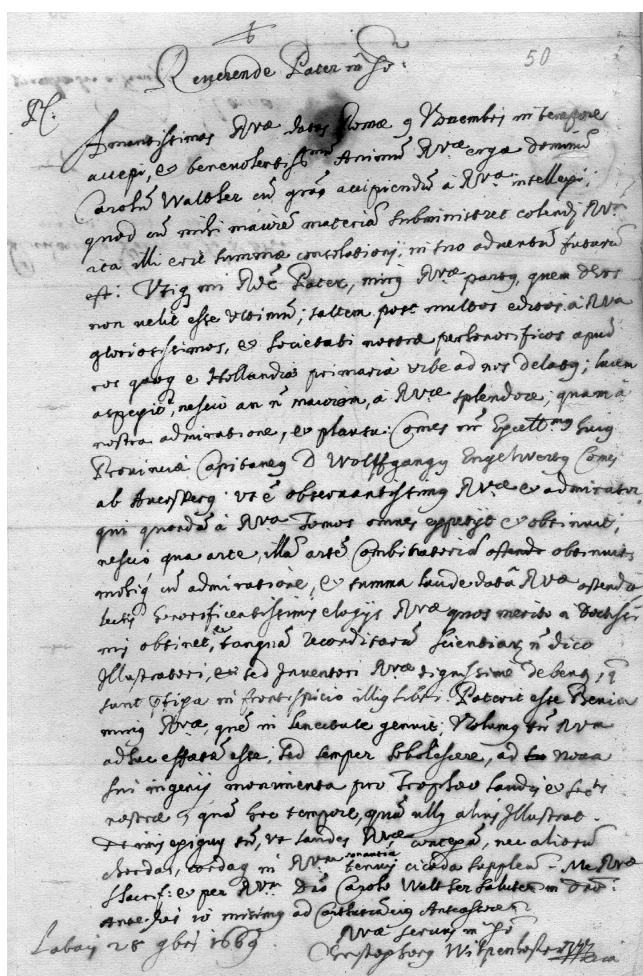 50
Reverende Pater in Xo:
PC.
Amantissimas RVæ datas Romæ 9 Novembris in tempore
accepi, et benevolentissimũ Animũ RVæ erga dominũ
Carolũ Walther cũ grãs accipiendũ à RVa intellexi;
quod cũ mihi maiorẽ materiã subministret colendi RVa
ita illi erit summæ consolationis, in suo adventu futurũ
est: Utiq mi Rde Pater, minꝰ RVæ partꝰ, quem Deꝰ
non velit esse ultimũ; saltem post multos editos à RVa
gloriosissimos, et Societati nostræ perhonorificos apud
nos quoq e Hollandiæ primaria urbe ad nos delatꝰ; lucem
aspexit, nescio an n maiorem, à RVæ splendore; quam à
nostra admiratione, et plausu. Comes nr Excellmꝰ huiꝰ
Provinciæ Capitaneꝰ D Wolffgangꝰ Engelbertꝰ Comes
ab Aversperg: ut ẽ observantissimꝰ RVæ et admirator
qui quondã à RVa Tomos omnes expetijt et obtinuit,
nescio qua arte, illã artẽ Combinatoriã obtinuit
mihiq cũ admiratione, et summa laude datã RVæ ostendit
lectis honorificentissimis elogijs RVæ quos merito a Doctissi
mis obtinet, tanquã reconditarũ Scientiarũ n dico
Illustratori, sed Inventori RVæ dignissime debentꝰ,
sunt in frontispicio illiꝰ libri. Poterit esse Benia
minꝰ RVæ, quẽ in senectute genuit; Nolumꝰ tñ RVa
adhuc effætã esse, sed semper ad nova
sui ingenij monumenta pro Trophæo laudis et Soctis
nostræ, quã hoc tempore, quã ullꝰ aliꝰ Illustrat.
exiguꝰ tñ, ut laudes RVæ nec aliarũ
chordas, cordaq in RVam sonantia tenuis cicada suppleam. Me RVæ
SSacrif: et per RVa Dno Carolo Walther salutem in Dno.
Labaci 28 9bris 1669
RVæ servus in Xo
Christophorꝰ